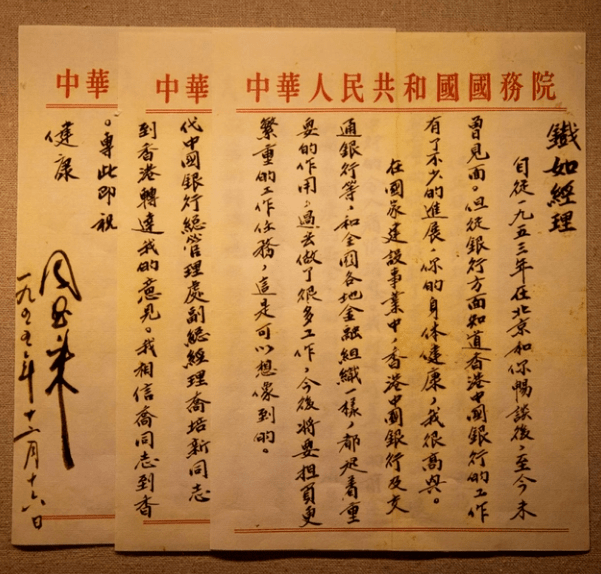 中華人民共和國國務院
鐵如經理
自從一九五三年在北京和你暢談後，至今未
曾見面。但從銀行方面知道香港中國銀行的工作
有了不少的進展，你的身体健康，我很高兴。
在國家建設事業中，香港中國銀行及交
通銀行等，和全國各地金融組織一樣，都起着重
要的作用，過去做了很多工作，今後將要担負更
繁重的工作任務，這是可以想像到的。
中華
代中國銀行總管理處副總經理喬培新同志
到香港轉達我的意見。我相信喬同志到香
中華
。專此即祝
健康
周恩来
一九五五年十二月十六日